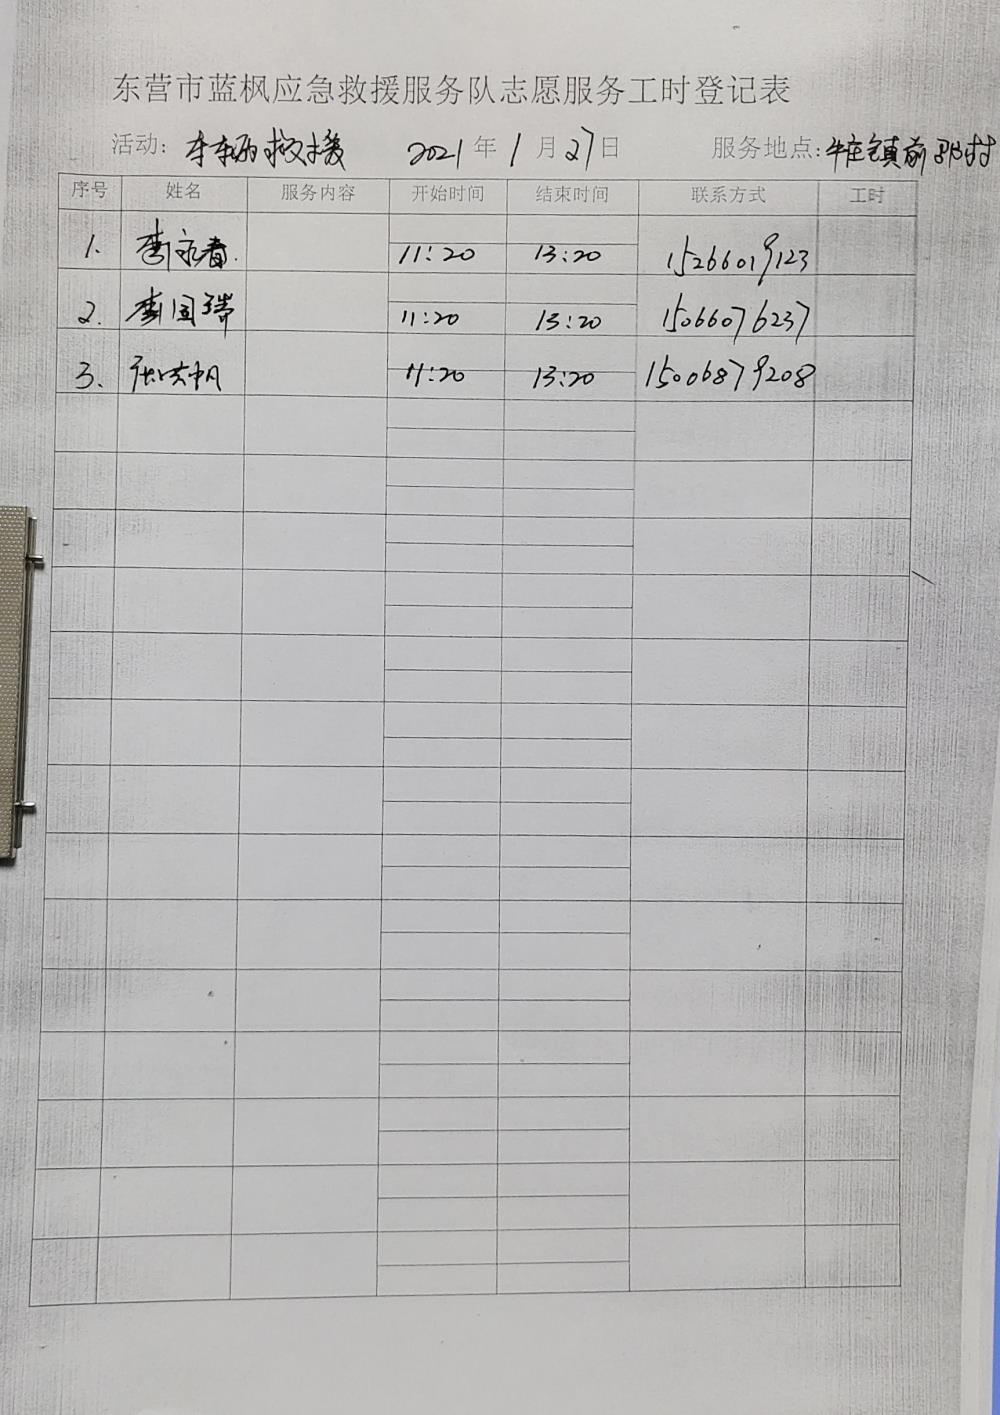 东营市蓝枫应急救援服务队志愿服务工时登记表
活动: 车辆救援 2021 年 1 月 27 日 服务地点: 牛庄镇前邵村
序号 姓名 服务内容 开始时间 结束时间 联系方式 工时
1. 李永春 11:20 13:20 15266019123
2. 李国瑞 11:20 13:20 15066076237
3. 11:20 13:20 15006879208